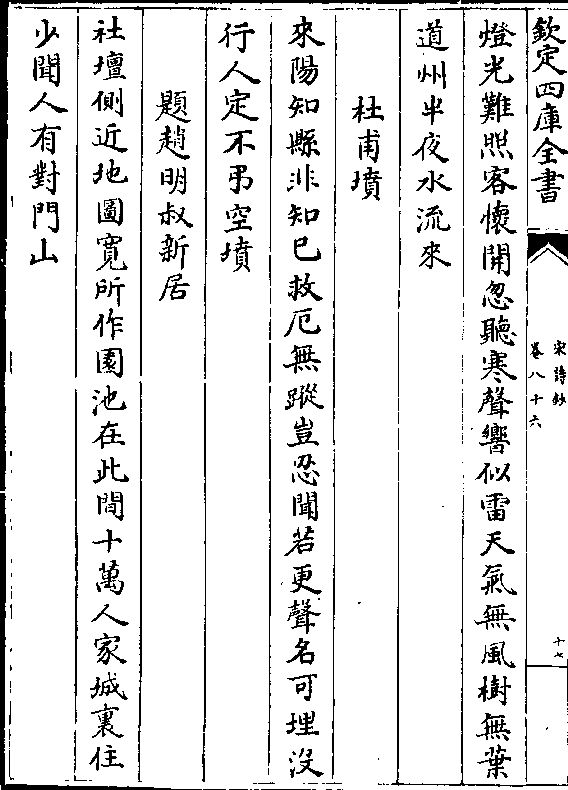 欽定四庫全書
宋詩鈔
卷八十六
十七
燈光難照客懷開忽聽寒聲響似雷天氣無風樹無葉
道州半夜水流來
杜甫墳
來陽知縣非知已救厄無蹤豈忍聞若更聲名可埋没
行人定不弔空墳
題趙明叔新居
社壇側近地圖寛所作園池在此間十萬人家城裏住
少聞人有對門山